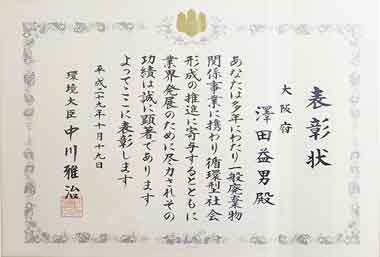 表彰状
大阪府
澤田益男殿
あなたは多年にわたり一般廃棄物
関係事業に携わり循環型社会
形成の推進に寄与するとともに
業界発展のために尽力されその
功績は誠に顕著であります
よってここに表彰します
平成二十九年十月十九日
環境大臣 中川雅治